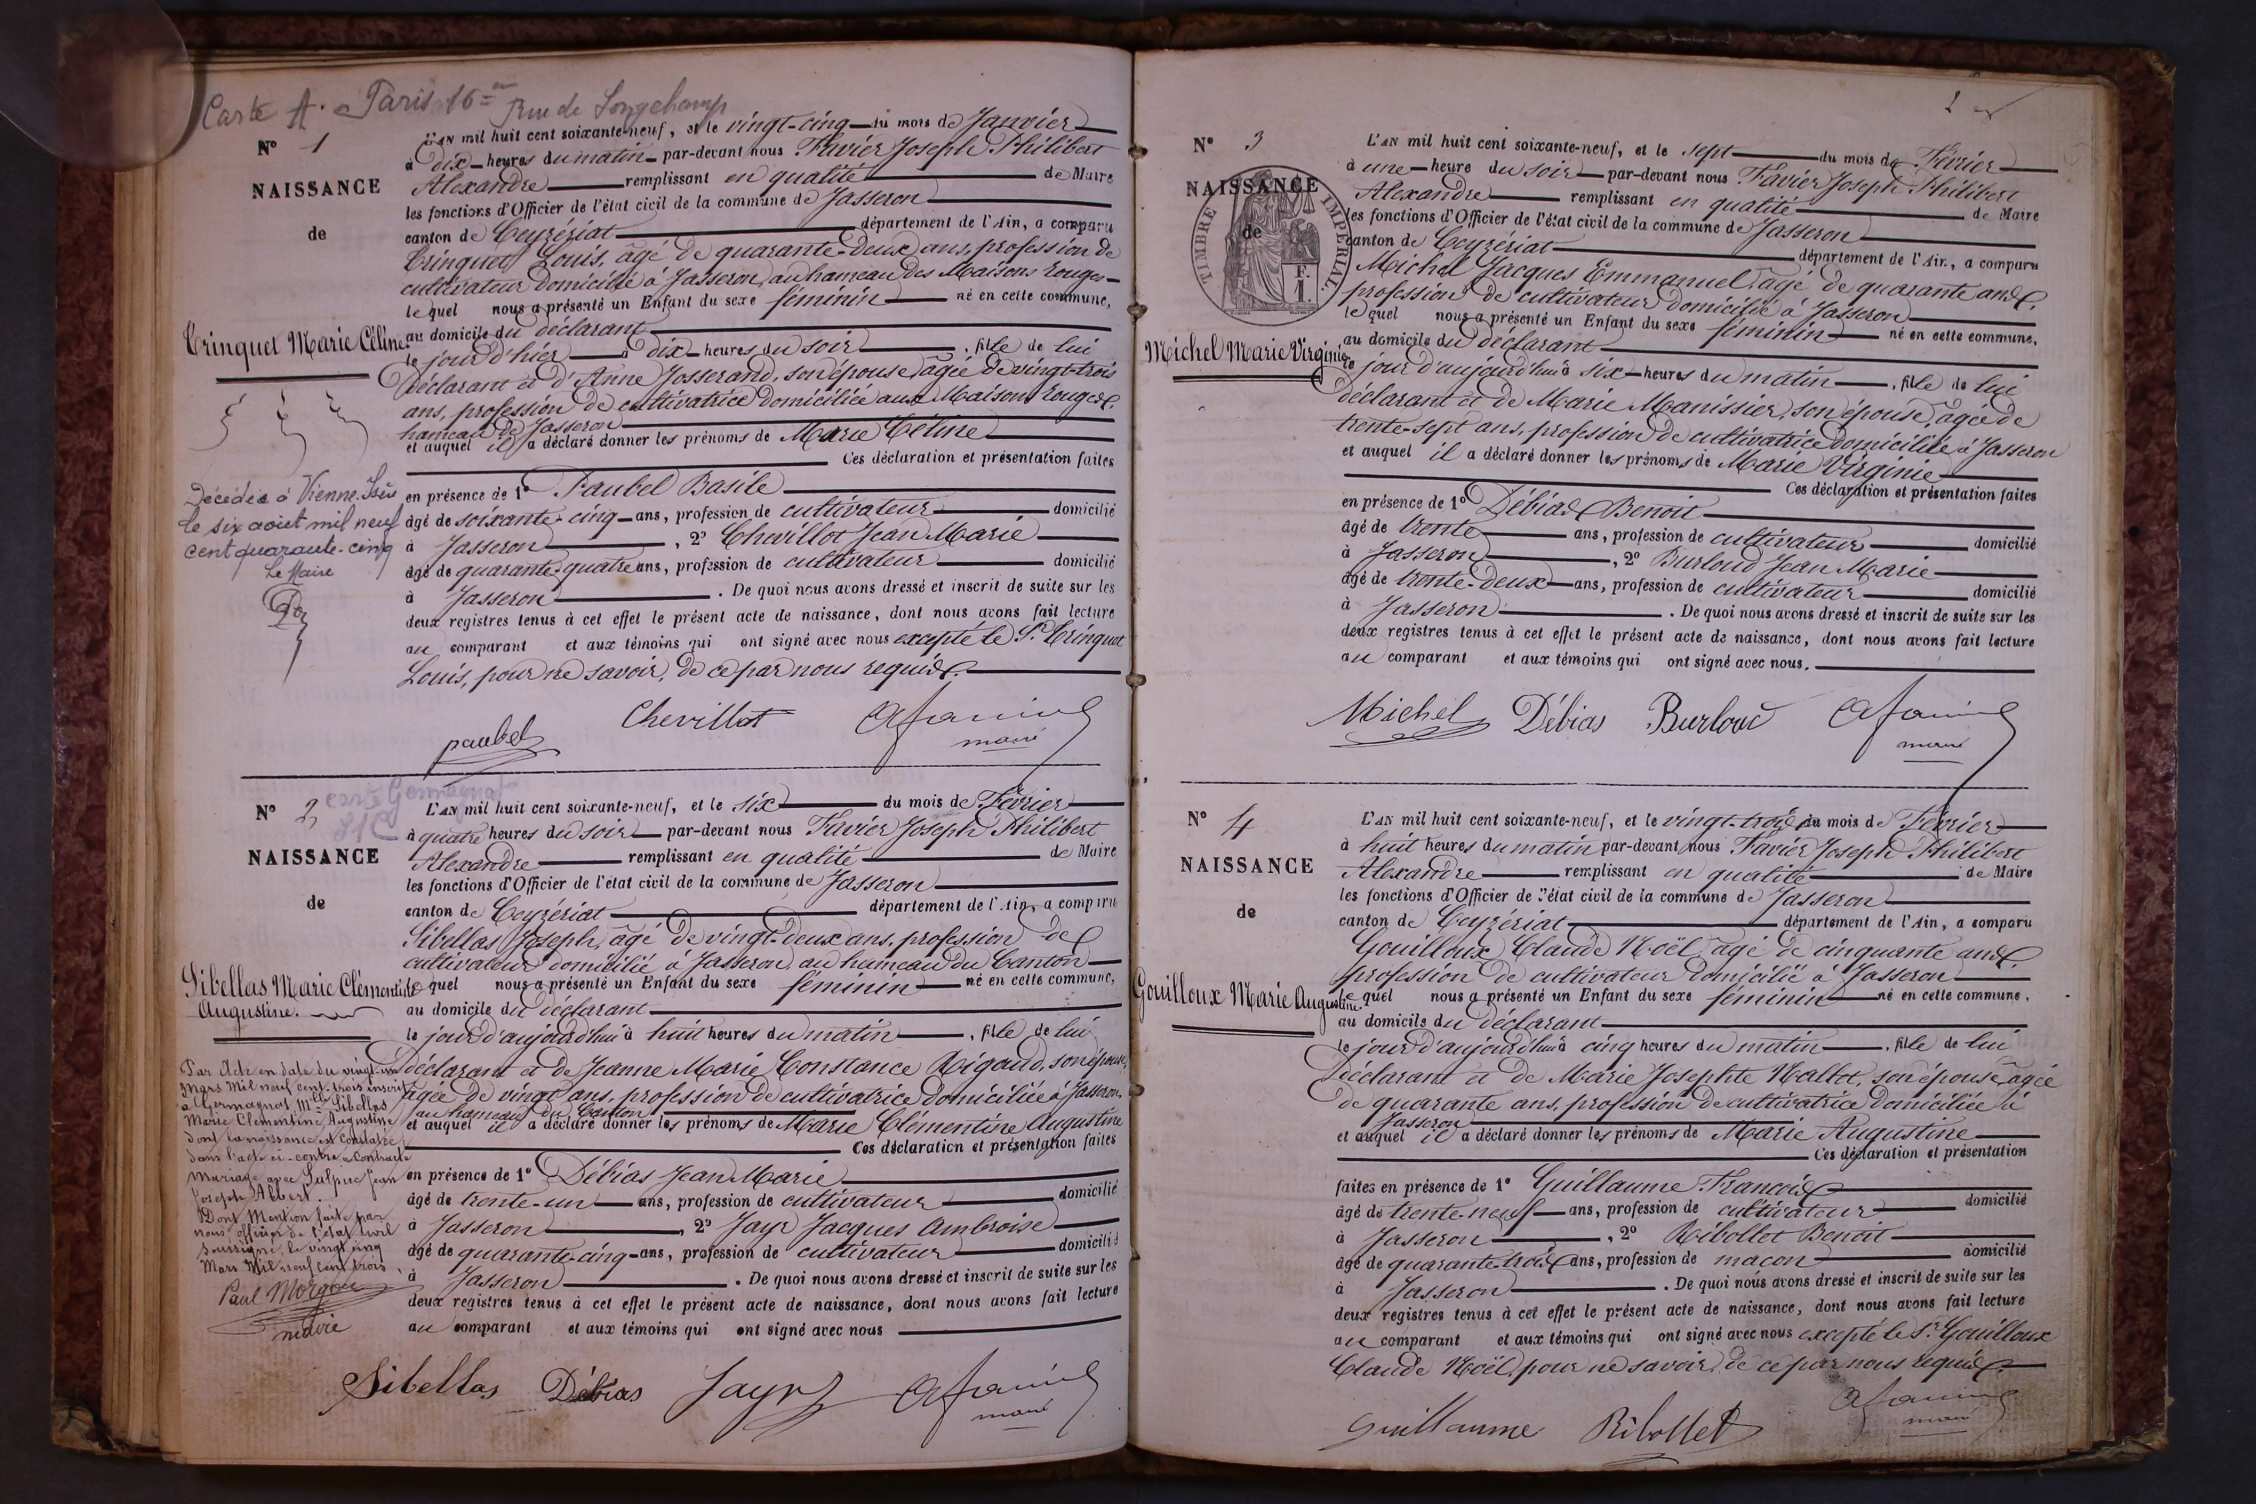 Carte A. Paris 16 Rue de Longchamp
N° 1
NAISSANCE
de
Trinquet Marie Céline
Décédée à Vienne-Isère
le six août mil neuf
cent quarante-cinq
Le Maire
L'AN mil huit cent soixante-neuf, et le vingt-cinq du mois de Janvier
à dix heures du matin par-devant nous Favier Joseph Philibert
Alexandre remplissant en qualité de Maire
les fonctions d'Officier de l'état civil de la commune de Jasseron
canton de Ceyzériat département de l'Ain, a comparu
Trinquet Louis, âgé de quarante-deux ans, profession de
cultivateur domicilié à Jasseron, au hameau des Maisons rouges
lequel nous a présenté un Enfant du sexe féminin né en cette commune,
au domicile du déclarant
le jour d'hier à dix heures du soir, fille de lui
déclarant et d'Anne Josserand, son épouse, agée de vingt-trois
ans, profession de cultivatrice domiciliée aux Maisons rouges,
hameau de Jasseron
et auquel il a déclaré donner les prénoms de Marie Céline
Ces déclaration et présentation faites
en présence de 1° Faubel Basile
âgé de soixante-cinq ans, profession de cultivateur domicilié
à Jasseron, 2° Chevillot Jean Marie
âgé de quarante-quatre ans, profession de cultivateur domicilié
à Jasseron. De quoi nous avons dressé et inscrit de suite sur les
deux registres tenus à cet effet le présent acte de naissance, dont nous avons fait lecture
au comparant et aux témoins qui ont signé avec nous excepté le Sr. Trinquet
Louis, pour ne savoir, de ce par nous requis.
paubel Chevillot
maire
N° 2
carte Germagnat
NAISSANCE
de
Sibellas Marie Clémentine
Augustine.
Par Acte en date du vingt-un
Mars Mil neuf cent trois inscrit
à Germagnat, Mlle Sibellas
Marie Clémentine Augustine
dont la naissance est constatée
dans l'acte ci-contre a contracté
Mariage avec Sulpice Jean
Joseph Albert.
Dont Mention faite par
nous officier de l'état civil
soussigné, le vingt cinq
Mars Mil neuf cent trois
Paul Morgon
maire
L'AN mil huit cent soixante-neuf, et le six du mois de Février
à quatre heures du soir par-devant nous Favier Joseph Philibert
Alexandre remplissant en qualité de Maire
les fonctions d'Officier de l'état civil de la commune de Jasseron
canton de Ceyzériat département de l'Ain, a comparu
Sibellas Joseph, âgé de vingt-deux ans, profession de
cultivateur domicilié à Jasseron, au hameau du Canton
lequel nous a présenté un Enfant du sexe féminin né en cette commune,
au domicile du déclarant
le jour d'aujourd'hui à huit heures du matin, fille de lui
déclarant et de Jeanne Marie Constance Rigaud, son épouse,
agée de vingt ans, profession de cultivatrice domiciliée à Jasseron,
au hameau du Canton
et auquel il a déclaré donner les prénoms de Marie Clémentine Augustine
Ces déclaration et présentation faites
en présence de 1° Débias Jean Marie
âgé de trente-un ans, profession de cultivateur domicilié
à Jasseron, 2° Jayr Jacques Ambroise
âgé de quarante-cinq ans, profession de cultivateur domicilié
à Jasseron. De quoi nous avons dressé et inscrit de suite sur les
deux registres tenus à cet effet le présent acte de naissance, dont nous avons fait lecture
au comparant et aux témoins qui ont signé avec nous
Sibellas Débias Jayr
maire
N° 3
NAISSANCE
de
TIMBRE IMPÉRIAL
F.
1.
Michel Marie Virginie
L'AN mil huit cent soixante-neuf, et le sept du mois de Février
à une heure du soir par-devant nous Favier Joseph Philibert
Alexandre remplissant en qualité de Maire
les fonctions d'Officier de l'état civil de la commune de Jasseron
canton de Ceyzériat département de l'Ain, a comparu
Michel Jacques Emmanuel, âgé de quarante ans,
profession de cultivateur domicilié à Jasseron
lequel nous a présenté un Enfant du sexe féminin né en cette commune,
au domicile du déclarant
le jour d'aujourd'hui à six heures du matin, fille de lui
déclarant et de Marie Manissier, son épouse, agée de
trente-sept ans, profession de cultivatrice domiciliée à Jasseron
et auquel il a déclaré donner les prénoms de Marie Virginie
Ces déclaration et présentation faites
en présence de 1° Débias Benoit
âgé de trente ans, profession de cultivateur domicilié
à Jasseron, 2° Burloud Jean Marie
âgé de trente-deux ans, profession de cultivateur domicilié
à Jasseron. De quoi nous avons dressé et inscrit de suite sur les
deux registres tenus à cet effet le présent acte de naissance, dont nous avons fait lecture
au comparant et aux témoins qui ont signé avec nous.
Michel Débias Burloud
maire
N° 4
NAISSANCE
de
Gouilloux Marie Augustine.
L'AN mil huit cent soixante-neuf, et le vingt-trois du mois de Février
à huit heures du matin par-devant nous Favier Joseph Philibert
Alexandre remplissant en qualité de Maire
les fonctions d'Officier de l'état civil de la commune de Jasseron
canton de Ceyzériat département de l'Ain, a comparu
Gouilloux Claude Noël, âgé de cinquante ans,
profession de cultivateur domicilié à Jasseron
lequel nous a présenté un Enfant du sexe féminin né en cette commune,
au domicile du déclarant
le jour d'aujourd'hui à cinq heures du matin, fille de lui
déclarant et de Marie Josephte Hallot, son épouse, agée
de quarante ans, profession de cultivatrice domiciliée à
Jasseron
et auquel il a déclaré donner les prénoms de Marie Augustine
Ces déclaration et présentation
faites en présence de 1° Guillaume François
âgé de trente-neuf ans, profession de cultivateur domicilié
à Jasseron, 2° Ribollet Benoit
âgé de quarante-trois ans, profession de maçon domicilié
à Jasseron. De quoi nous avons dressé et inscrit de suite sur les
deux registres tenus à cet effet le présent acte de naissance, dont nous avons fait lecture
au comparant et aux témoins qui ont signé avec nous excepté le Sr. Gouilloux
Claude Noël, pour ne savoir, de ce par nous requis.
Guillaume Ribollet
maire